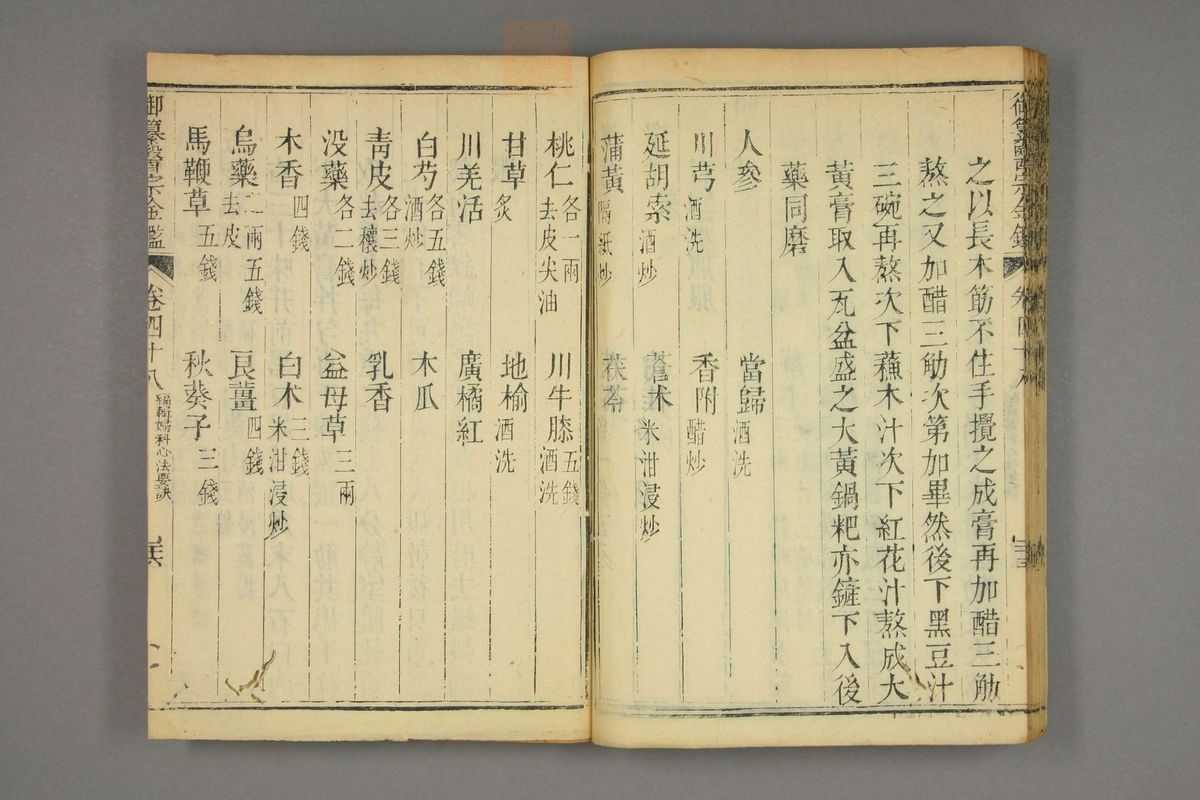 之以長木筋不住手攪之成膏再加醋三觔
熬之又加醋三觔次第加畢然後下黑豆汁
三碗再熬次下蘓木汁次下紅花汁熬成大
黃膏取入瓦盆盛之大黃鍋粑亦鏟下入後
藥同磨
人參 當歸酒洗
川芎酒洗 香附醋炒
延胡索酒炒 蒼术米泔浸炒
蒲黃隔紙炒 茯苓
桃仁各一兩去皮尖油 川牛膝五錢酒洗
甘草炙 地榆酒洗
川羌活 廣橘紅
白芍各五錢酒炒 木瓜
青皮各三錢去穰炒 乳香
没藥各二錢 益母草三兩
木香四錢 白术三錢米泔浸炒
烏藥二兩五錢去皮 良薑四錢
馬鞭草五錢 秋葵子三錢
御纂醫宗金鑑 卷四十八 編輯婦科心法要訣